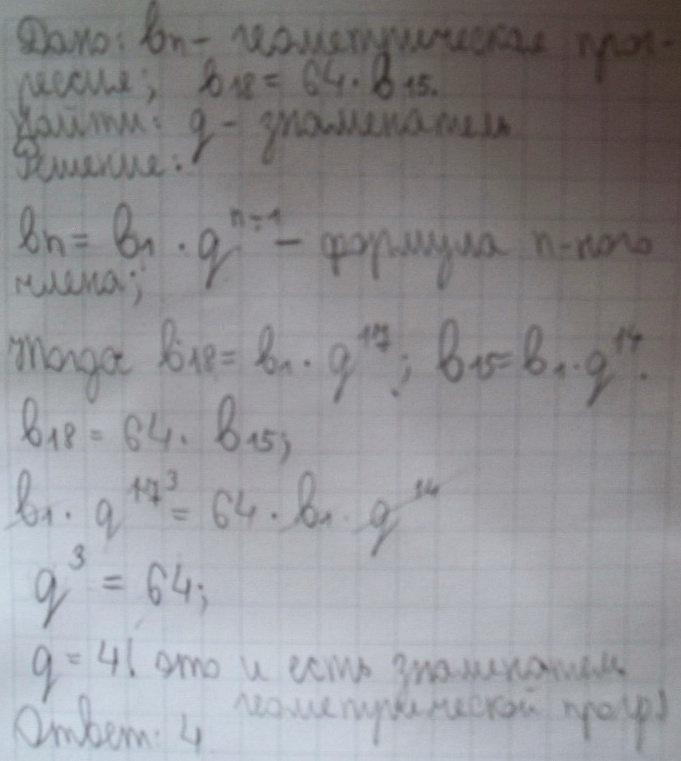 Дано: bn - геометрическая прог-
рессия; b18 = 64 · b15.
Найти: q - знаменатель
Решение:
bn = b1 · q^n-1 - формула n-ного
члена;
Тогда b18 = b1 · q^17; b15 = b1 · q^14.
b18 = 64 · b15;
b1 · q^17 3 = 64 · b1 · q^14
q^3 = 64;
q = 4 (это и есть знаменатель
геометрической прогр)
Ответ: 4